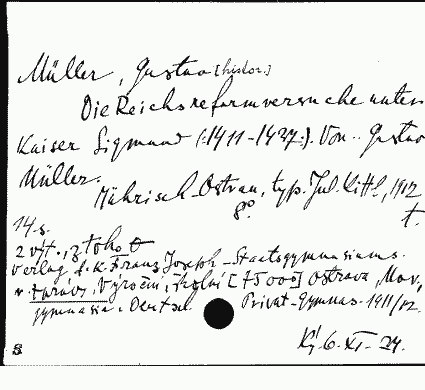 Müller, Gustav [histor.]
Die Reichsreformversuche unter
Kaiser Sigmund (:1411-1437:). Von Gustav
Müller.
Mährisch-Ostrau, typ. Jul. Kittl, 1912
8° t.
14 s.
2 výt., z toho
Verlag k.k. Franz Joseph-Staatsgymnasiums.
v Výroční školní [75000] Ostrava, Mor.,
gymnasia: Deutsch. Privat-Gymnas. 1911/12.
6.XI.24.
S